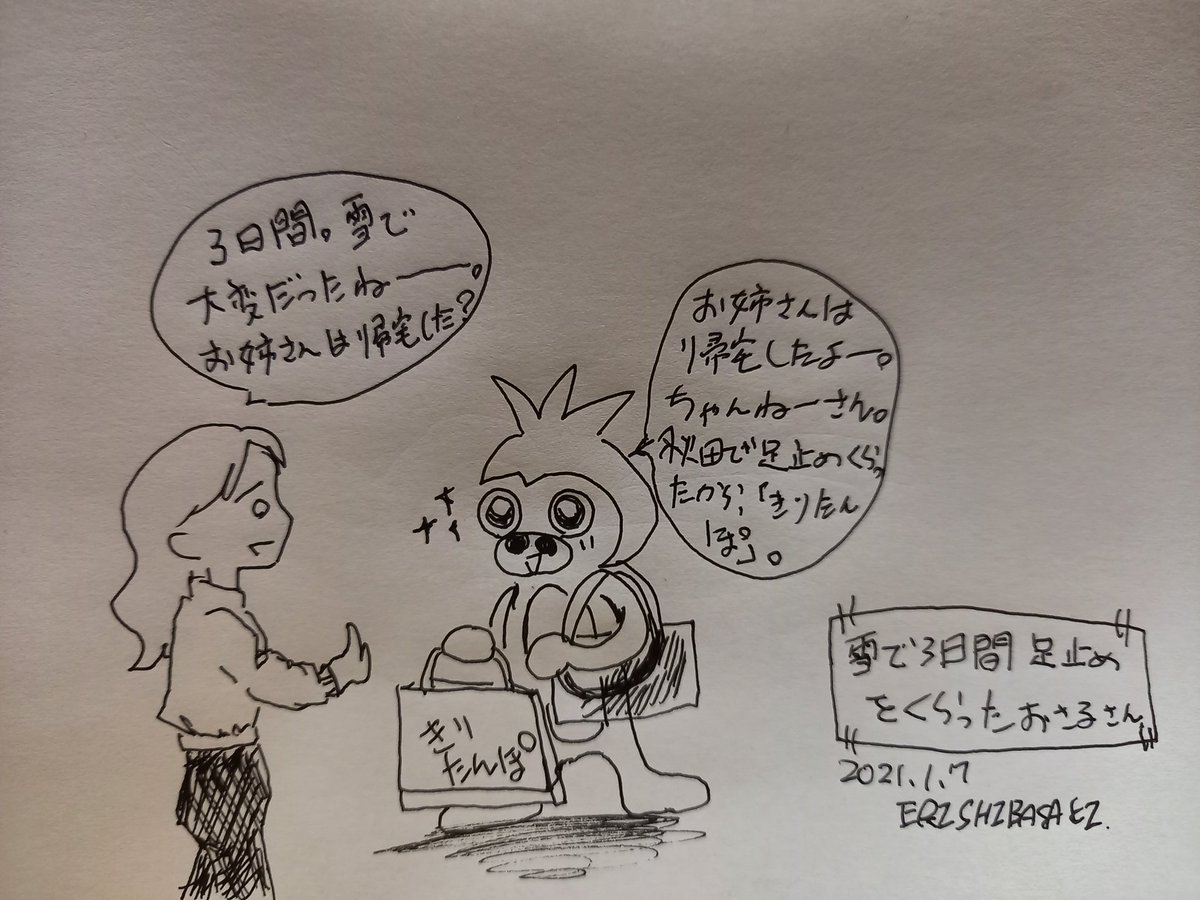 3日間。雪で
大変だったねー。
お姉さんは帰宅した?
お姉さんは
帰宅したよー。
ちゃんねーさん。
秋田で足止めくらっ
たから、「きりたん
ぽ」。
きり
たんぽ
雪で3日間足止め
をくらったおさるさん
2021.1.7
ERI SHIBASAKI.